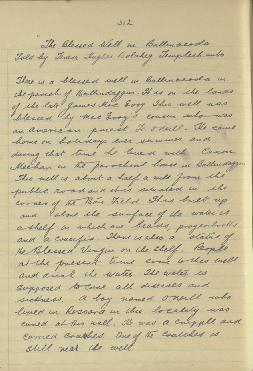 312
"The Blessed Well in Ballinacoola
Told by
There is a blessed well in Ballinacoola in
the parish of Ballindaggin. It is on the lands
of the late James Mac Evoy. This well was
blessed by Mac Evoy's cousin who was
an American priest. He came
home on holidays one summer and
during that time he lived with Canon
Meehan in the parochial house in Ballindaggin
This well is about a half a mile from the
public road and it is situated in the
corner of the Field. This built up
and above the surface of the water is
a shelf in which are beads prayerbooks
and a crucifix. There is also a statue of
the Blessed Virgin on the shelf. People
at the present time come to this well
and drink the water. The water is
supposed to cure all diseases and
sickness. A boy named O'Neill who
lived in in this locality was
cured at this well. He was a cripple and
carried crutches. One of the crutches is
still near the well